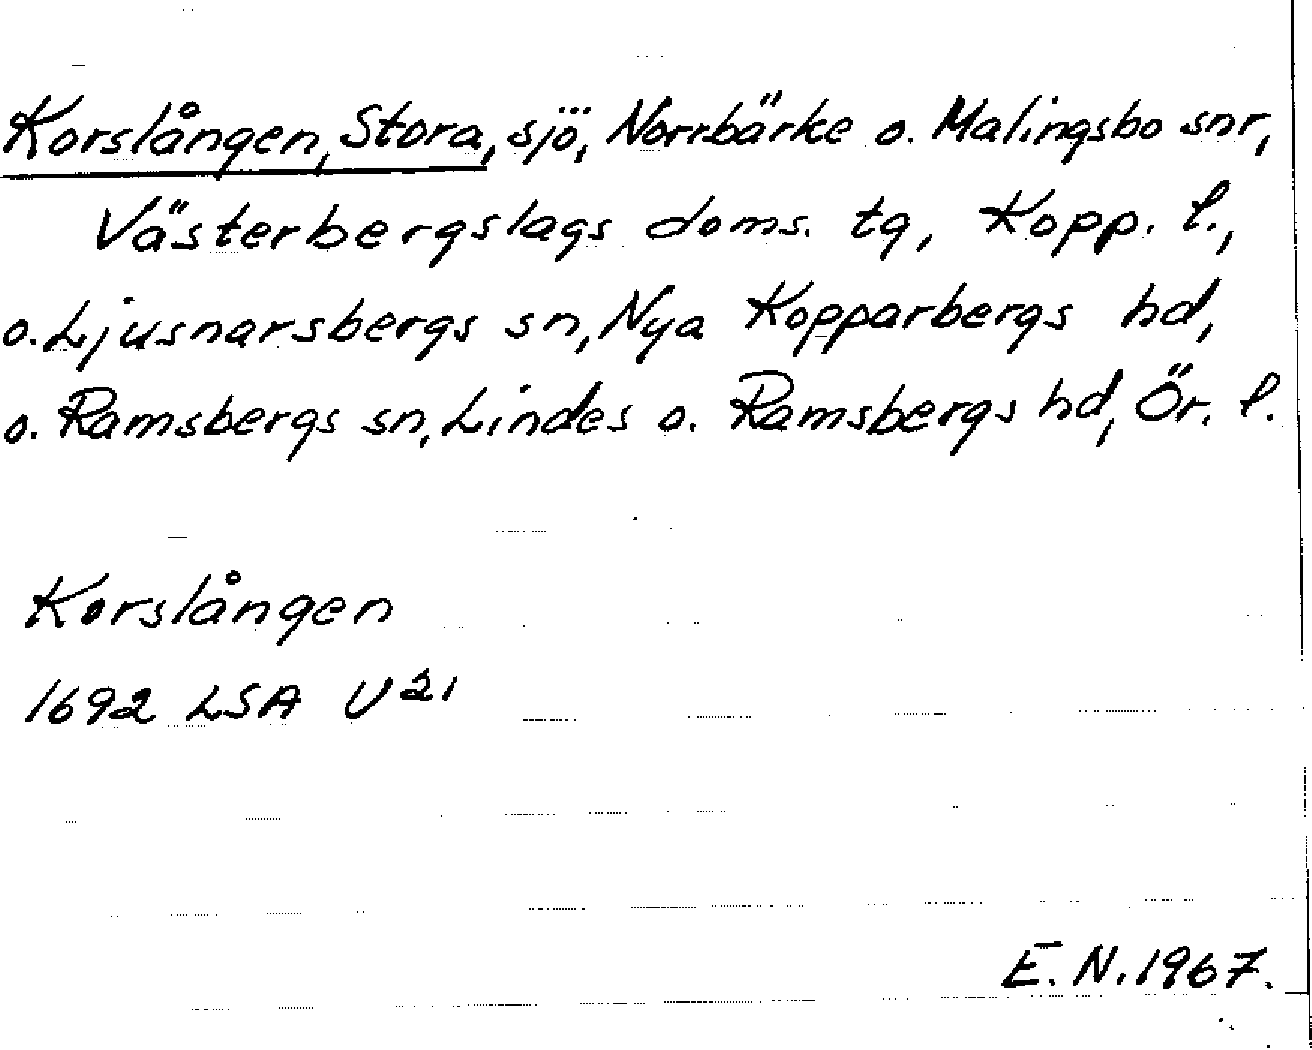 Korslången, Stora, sjö, Norrbärke o. Malingsbo snr,
Västerbergslags doms. tg, Kopp. l.,
o. Ljusnarsbergs sn, Nya Kopparbergs hd,
o. Ramsbergs sn, Lindes o. Ramsbergs hd, Ör. l.
Korslången
1692 LSA U21
E. N. 1967.